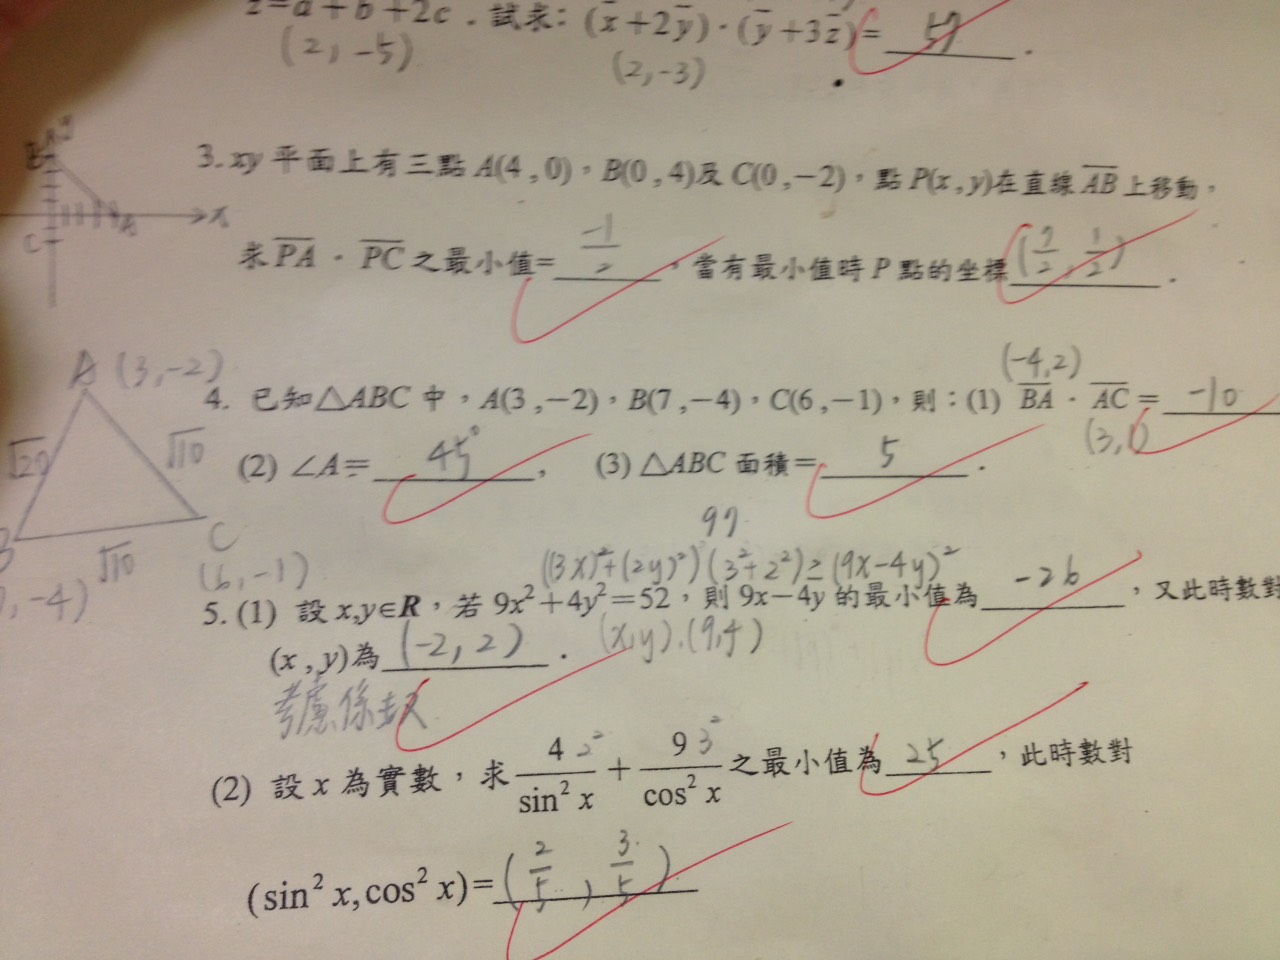 z=a+b+2c . 試求: (x+2y)·(y+3z)= 57 .
(2, -5) (2,-3)
3. xy 平面上有三點 A(4,0),B(0,4)及 C(0,-2),點 P(x,y)在直線 AB 上移動,
B x A C
求 PA · PC 之最小值= -1/2 ,當有最小值時 P 點的坐標 (7/2, 1/2) .
A (3,-2)
(-4,2)
4. 已知△ABC 中,A(3,-2),B(7,-4),C(6,-1),則:(1) BA · AC = -10
(3,1)
√20 √10
(2) ∠A= 45° , (3) △ABC 面積= 5 .
B C
√10 (6,-1)
, -4)
((3x)²+(2y)²)(3²+2²)≥(9x-4y)²
5. (1) 設 x,y∈R,若 9x²+4y²=52,則 9x-4y 的最小值為 -26 ,又此時數對
(x,y)為 (-2, 2) . (x,y).(9,4)
考慮係數
(2) 設 x 為實數,求 4 2²/sin² x + 9 3²/cos² x 之最小值為 25 ,此時數對
(sin² x,cos² x)= (2/5, 3/5)